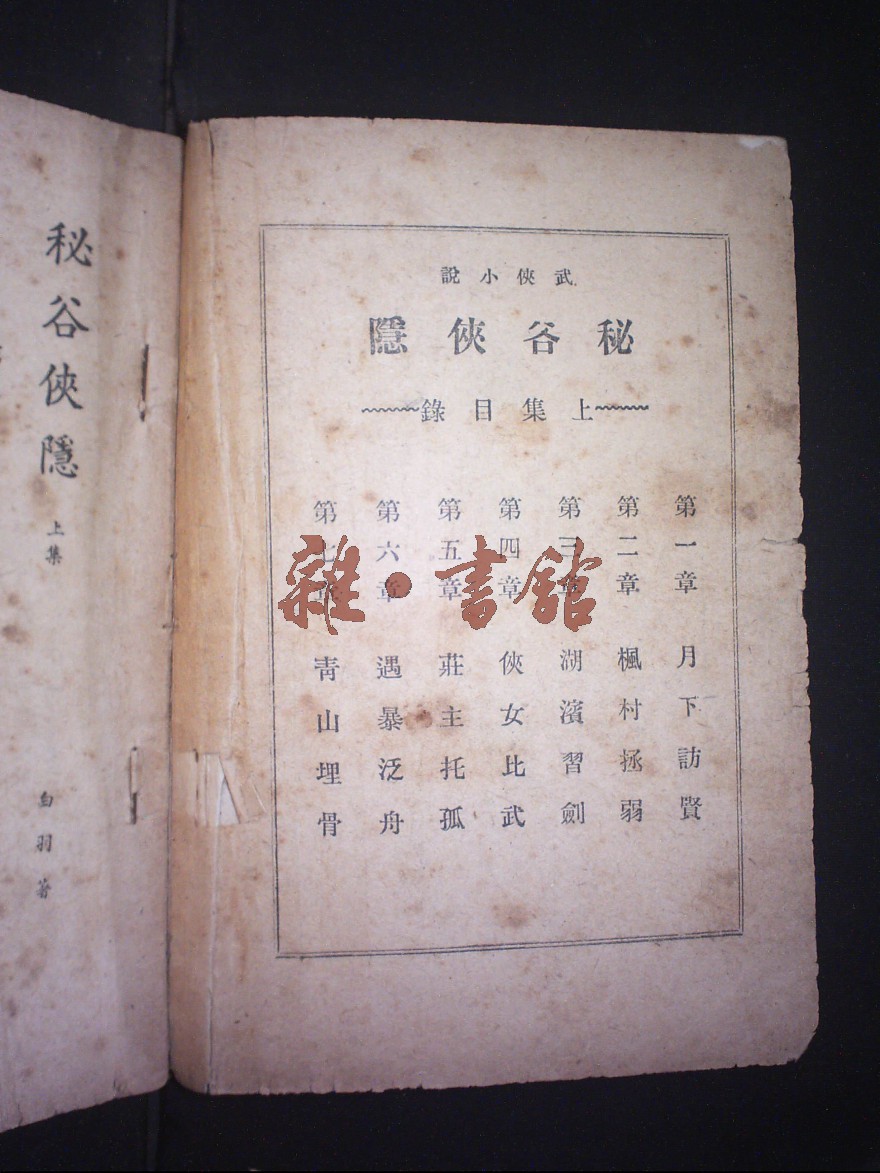 武俠小說
秘谷俠隱
上集目錄
第一章 月下訪賢
第二章 楓村拯弱
第三章 湖濱習劍
第四章 俠女比武
第五章 莊主托孤
第六章 遇暴泛舟
第七章 靑山埋骨
秘谷俠隱 上集
白羽著
雜·書館